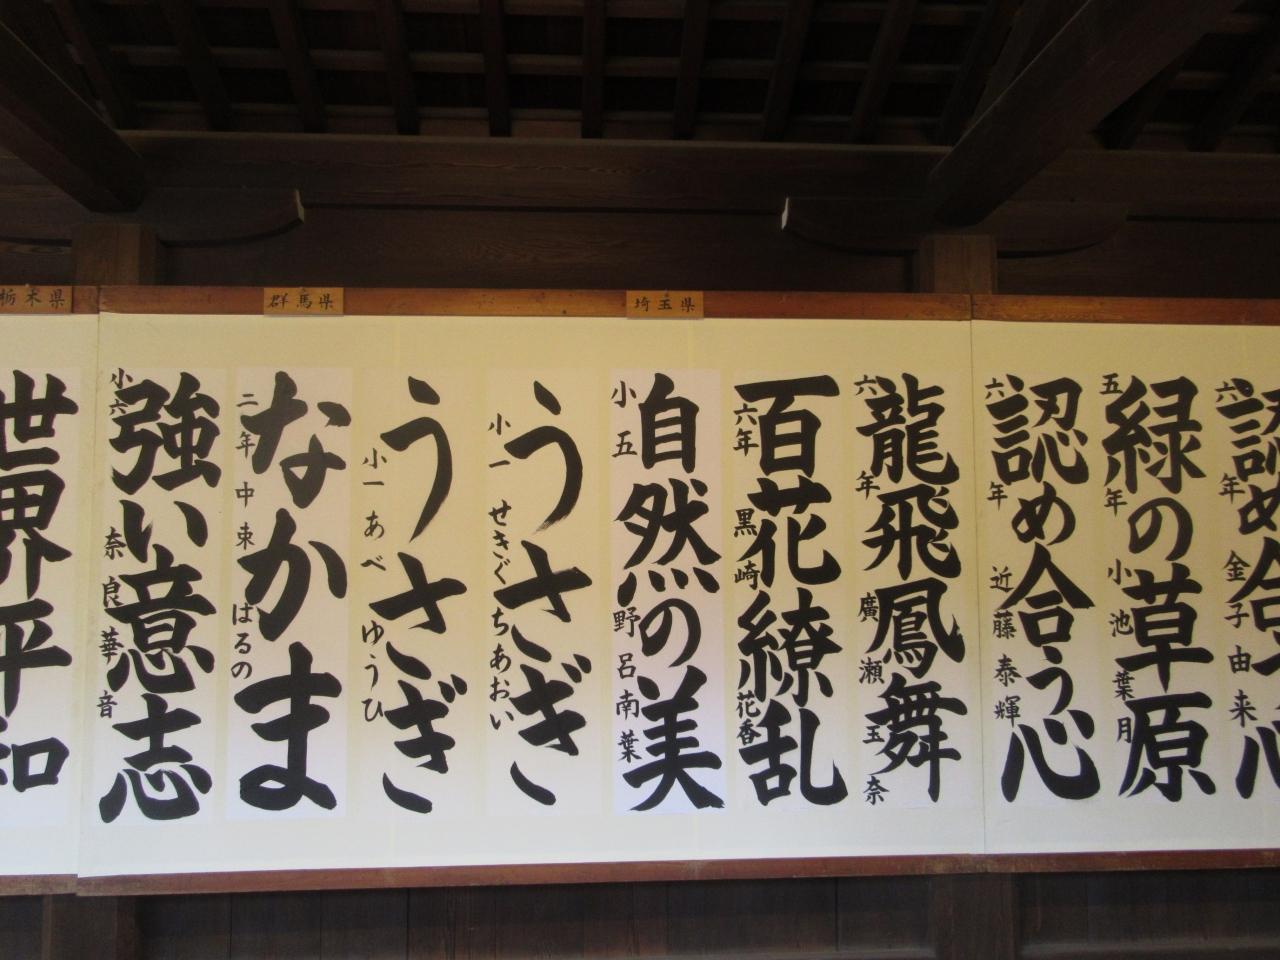 栃木県
群馬県
埼玉県
世界平和
強い意志
小六 奈良華音
なかま
二年 中束はるの
うさぎ
小一 あべゆうひ
うさぎ
小一 せきぐちあおい
自然の美
小五 野呂南葉
百花繚乱
六年 黒崎花香
龍飛鳳舞
六年 廣瀬玉奈
認め合う心
六年 近藤泰輝
緑の草原
五年 小池葉月
認め合う心
六年 金子由来